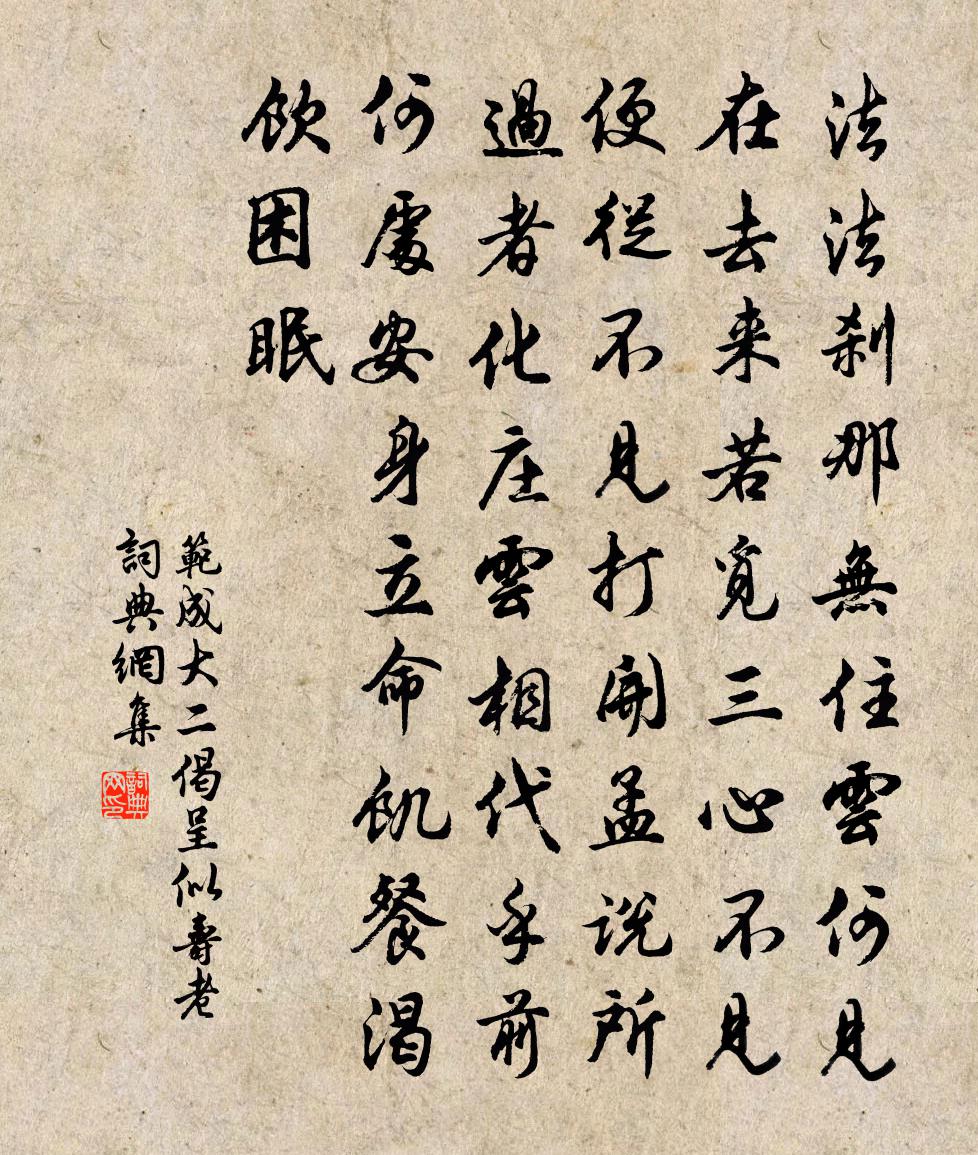 法法刹那無住雲何見
在去来若覓三心不見
便從不見打開孟説所
過者化庄雲相代乎前
何處安身立命飢餐渴
飲困眠
範成大二偈呈似壽老
詞典網集
詞典网印